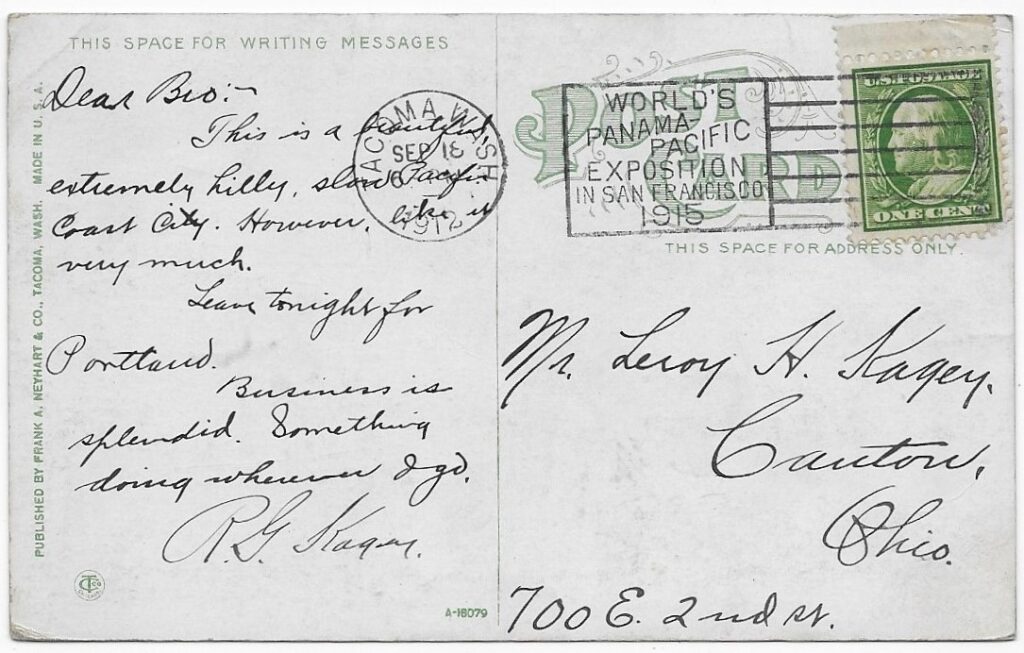 THIS SPACE FOR WRITING MESSAGES
Dear Bro:-
This is a beautiful,
extremely hilly, slow Pacific
Coast City. However, like it
very much.
Leave tonight for
Portland.
Business is
splendid. Something
doing wherever I go.
R. G. Kagey.
PUBLISHED BY FRANK A. NEYHART & CO., TACOMA, WASH. MADE IN U. S. A.
A-16079
TACOMA, WASH
SEP 18
1912
POST CARD
WORLD'S
PANAMA-
PACIFIC
EXPOSITION
IN SAN FRANCISCO
1915
U.S. POSTAGE
ONE CENT
THIS SPACE FOR ADDRESS ONLY.
Mr. Leroy H. Kagey.
Canton,
Ohio.
700 E. 2nd st.